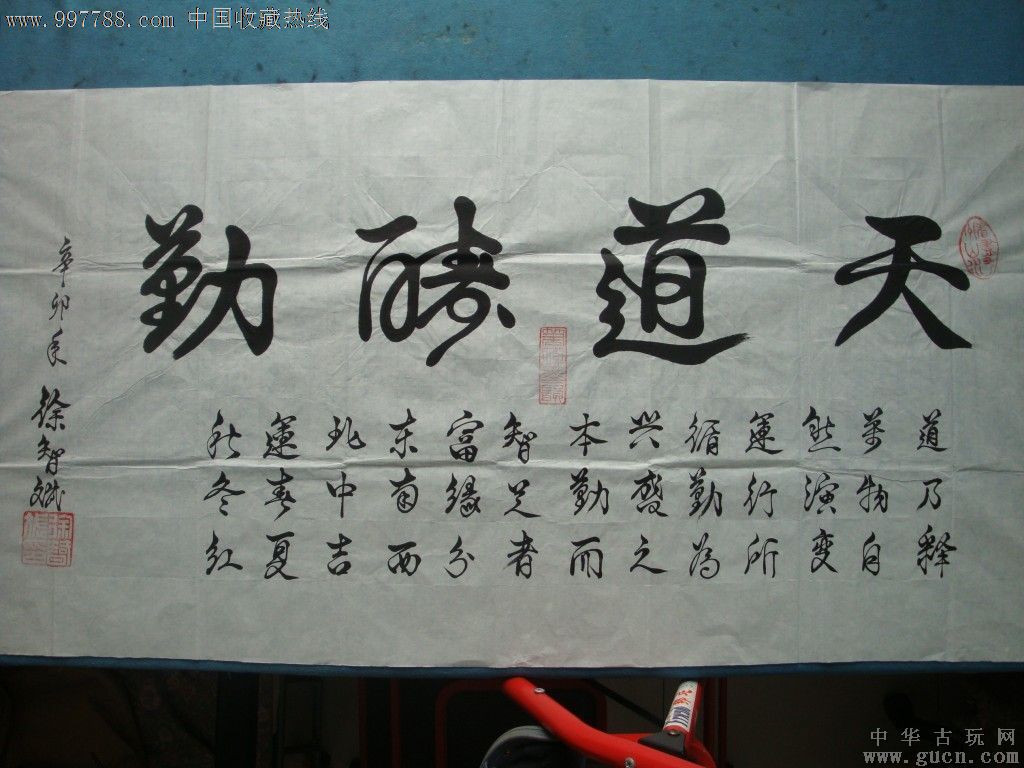 www.997788.com 中国收藏热线
天道酬勤
道乃释
万物自
然演变
運行所
循勤為
兴盛之
本勤而
智足者
富缘分
东南西
北中吉
運春夏
秋冬红
辛卯年
徐智斌
中华古玩网
www.gucn.com